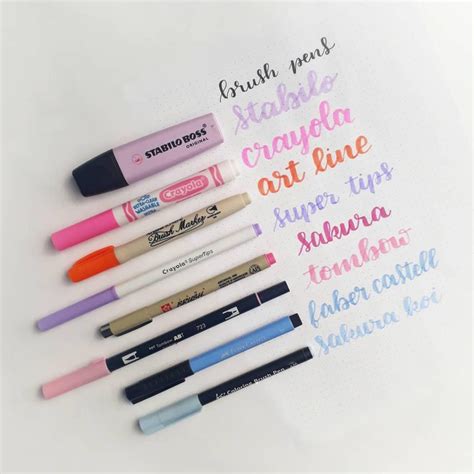 brush pens
stabilo
crayola
art line
super tips
sakura
tombow
faber castell
sakura koi
STABILO BOSS
ORIGINAL
ULTRA-CLEAN
WASHABLE
Crayola
Brush Marker
Crayola SuperTips
ABT
723
Coloring Brush Pen